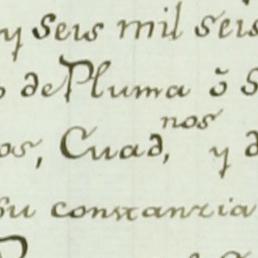 y seis mil seis
de Pluma ō
os, Cuad,nos y d
su constanzia